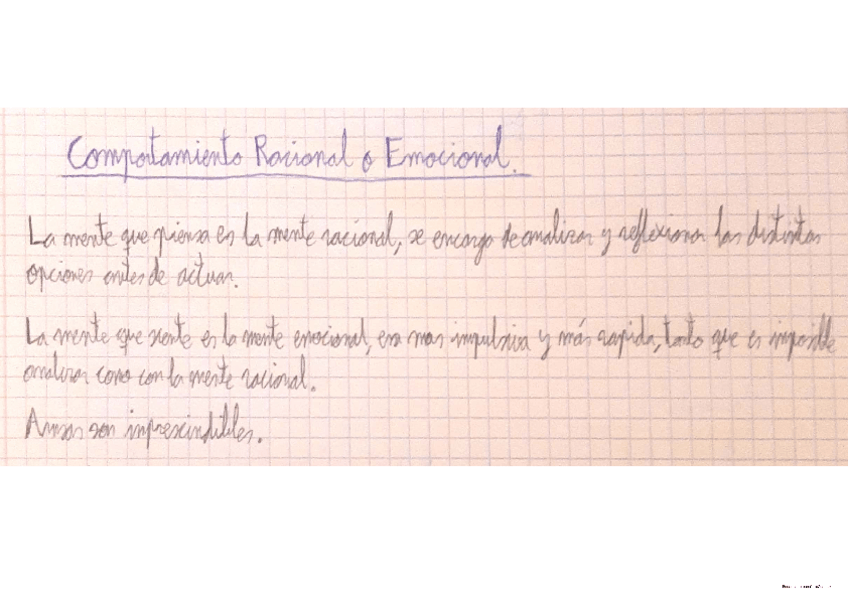 Comportamiento Racional o Emocional.
La mente que piensa es la mente racional, se encarga de analizar y reflexionar las distintas
opciones antes de actuar.
La mente que siente es la mente emocional, es mas impulsiva y más rapida, tanto que es imposible
analizar como con la mente racional.
Ambas son imprescindibles.